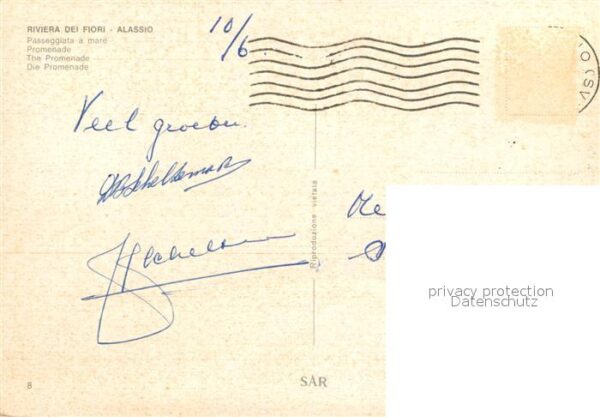 RIVIERA DEI FIORI - ALASSIO
Passeggiata a mare
Promenade
The Promenade
Die Promenade
10/6
Veel groeten.
Riproduzione vietata
privacy protection
Datenschutz
8
SAR